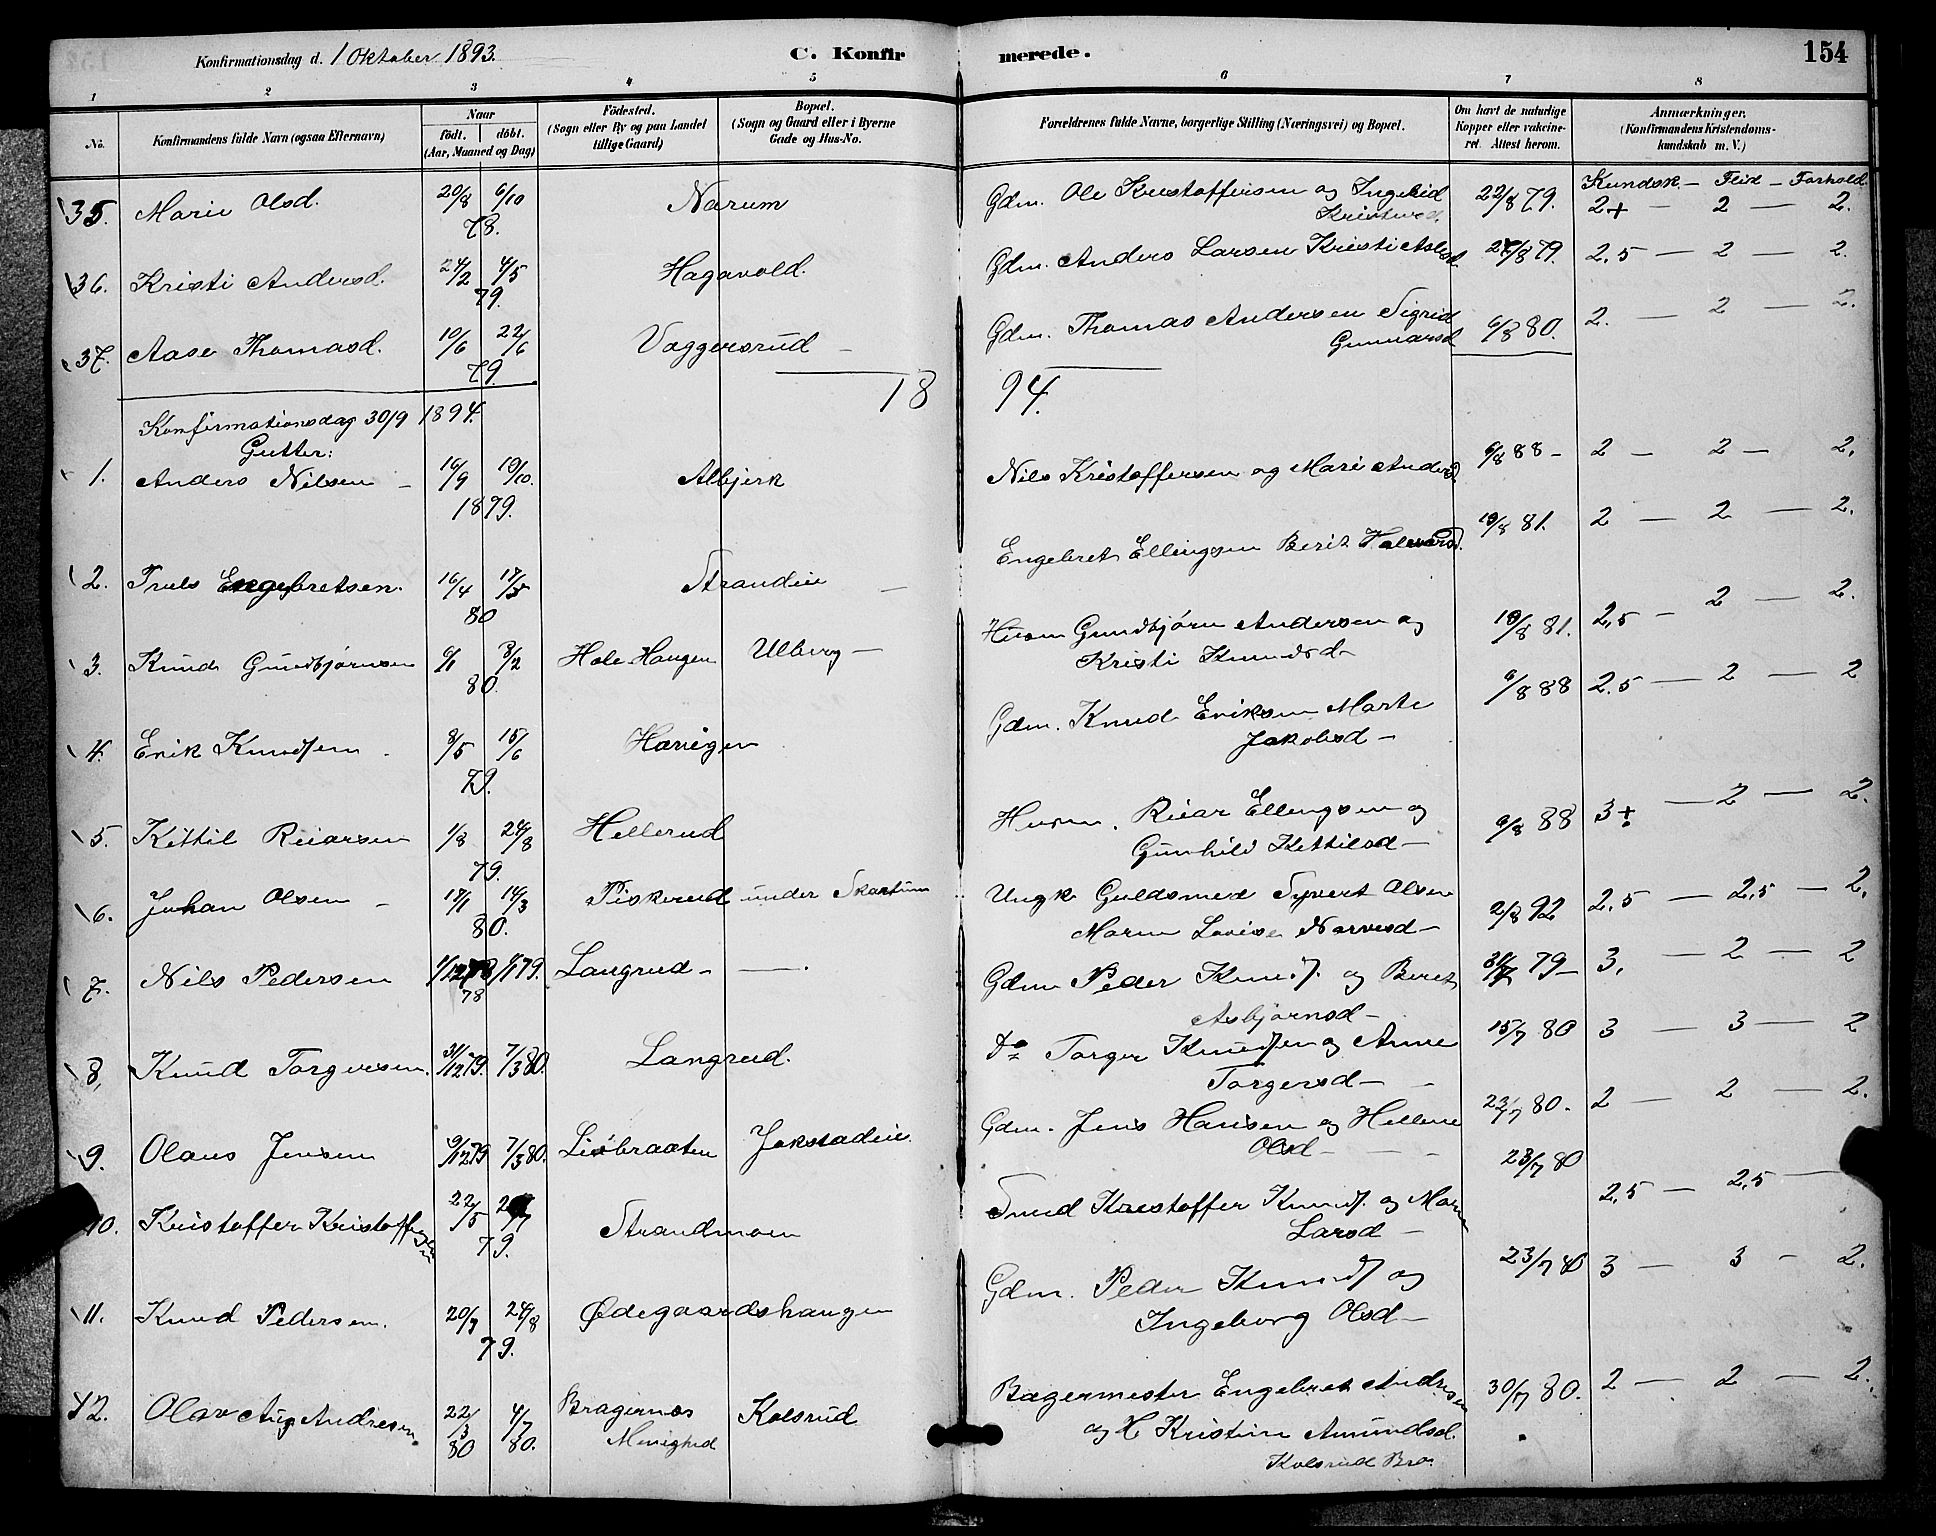 Konfirmationsdag d. 1 Oktober 1893. C. Konfirmerede. 154
1 2 3 4 5 6 7 8
No. Konfirmandens fulde Navn (ogsaa Efternavn) Naar født. døbt. (Aar, Maaned og Dag) Fødested. (Sogn eller By og paa Landet tillige Gaard) Bopæl. (Sogn og Gaard eller i Byerne Gade og Hus-No. Forældrenes fulde Navne, borgerlige Stilling (Næringsvei) og Bopæl. Om havt de naturlige Kopper eller vakcineret. Attest herom. Anmærkninger. (Konfirmandens Kristendomskundskab m. V.)
Kundsk - Flid - Forhold
35. Marie Olsd. 20/8 6/10 78. Narum Gdm. Ole Kristoffersen og Ingebid 22/8 79. 2+ - 2 - 2.
36. Kristi Andersd. 24/2 4/5 79. Hagavold. Gdm. Anders Larsen Kristi Aslesd. /8 79. 2,5 - 2 - 2.
37. Aase Thomasd. 10/6 22/6 79. Vaggersrud - Gdm. Thomas Andersen Sigrid Gunnarsd 6/8 80. 2. - 2 - 2.
1894.
Konfirmationsdag 30/9 1894.
Gutter:
1. Anders Nilsen - 16/9 19/10. 1879. Albjerk Nils Kristoffersen og Mari Andersd. 6/8 88 - 2 - 2 - 2.
2. Truls Engebretsen. 16/4 17/5 80 Strandeie - Engebret Ellingsen Berit Halvorsd. 19/8 81. 2 - 2 - 2.
3. Knud Gundbjørnsen 6/1 8/2 80. Hole Haugen Ulberg - Husm Gundbjørn Andersen og Kristi Knudsd - 19/8 81. 2,5 - 2 - 2.
4. Erik Knudsen - 8/5 15/6 79. Haugen Gdm. Knud Eriksen Marte Jakobsd - 6/8 88 2,5 - 2 - 2
5. Kittil Reiarsen 1/8 24/8 79. Hellerud Husm. Reiar Ellingsen og Gunhild Kittilsd - 6/8 88 3+ - 2 - 2.
6. Johan Olsen - 17/1 14/3 80. Piskerud under Skartum Ungk Guldsmed Syvert Olsen Maren Lovise Narvesd - 2/8 92 2,5 - 2,5 - 2.
7. Nils Pedersen 1/12 78 6/1 79. Langrud - - Gdm Peder Knuds. og Beret Asbjørnsd - 79 - 3. - 2 - 2
8, Knud Torgersen. 31/12 79. 7/3 80. Langrud. do Torger Knudsen og Anne Torgersd - 15/7 80 3 - 3 - 2
9. Olaus Jensen 9/12 79 7/3 80. Lisbraaten Jokstadeie. Gdm. Jens Hansen og Hellene Olsd - 23/7 80. 2 - 2 - 2.
10. Kristoffer Kristoffersen 22/5 79. Strandmoen Smed Kristoffer Knuds. og Maren Larsd - 23/7 80 2,5 - 2,5 -
11. Knud Pedersen. 20/7 24/8 79. Ødegaardshaugen Gdm. Peder Knuds og Ingeborg Olsd - 23/7 80 3 - 3 - 2.
12. Olav Aug Andresen. 22/3 80 4/7 80. Bragernæs Menighed Kolsrud Bagermester Engebret Andresen og H Kristine Amundsd. Kolsrud Bra. 30/7 80. 2 - 2 - 2.